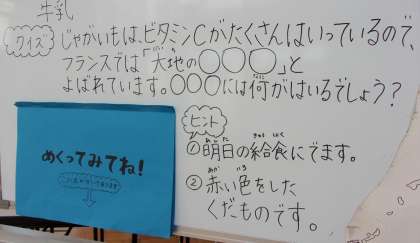 牛乳
クイズ
じゃがいもは、ビタミンCがたくさんはいっているので、
フランスでは「大地の〇〇〇」と
よばれています。〇〇〇には何がはいるでしょう？
めくってみてね！
ヒント
①明日の給食にでます。
②赤い色をした
くだものです。